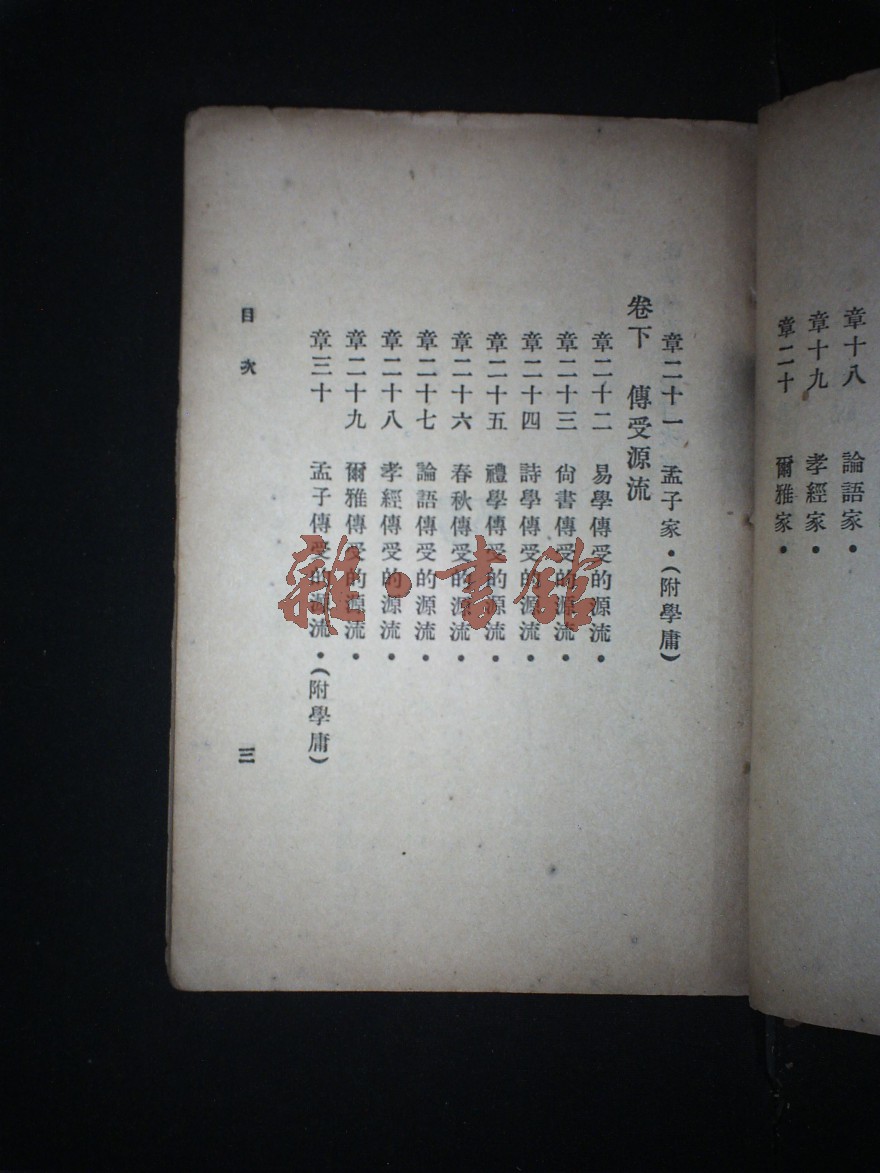 章十八 論語家•
章十九 孝經家•
章二十 爾雅家•
章二十一 孟子家•(附學庸)
卷下 傳受源流
章二十二 易學傳受的源流•
章二十三 尙書傳受的源流•
章二十四 詩學傳受的源流•
章二十五 禮學傳受的源流•
章二十六 春秋傳受的源流•
章二十七 論語傳受的源流•
章二十八 孝經傳受的源流•
章二十九 爾雅傳受的源流•
章三十 孟子傳受的源流•(附學庸)
目次 三
雜•書館